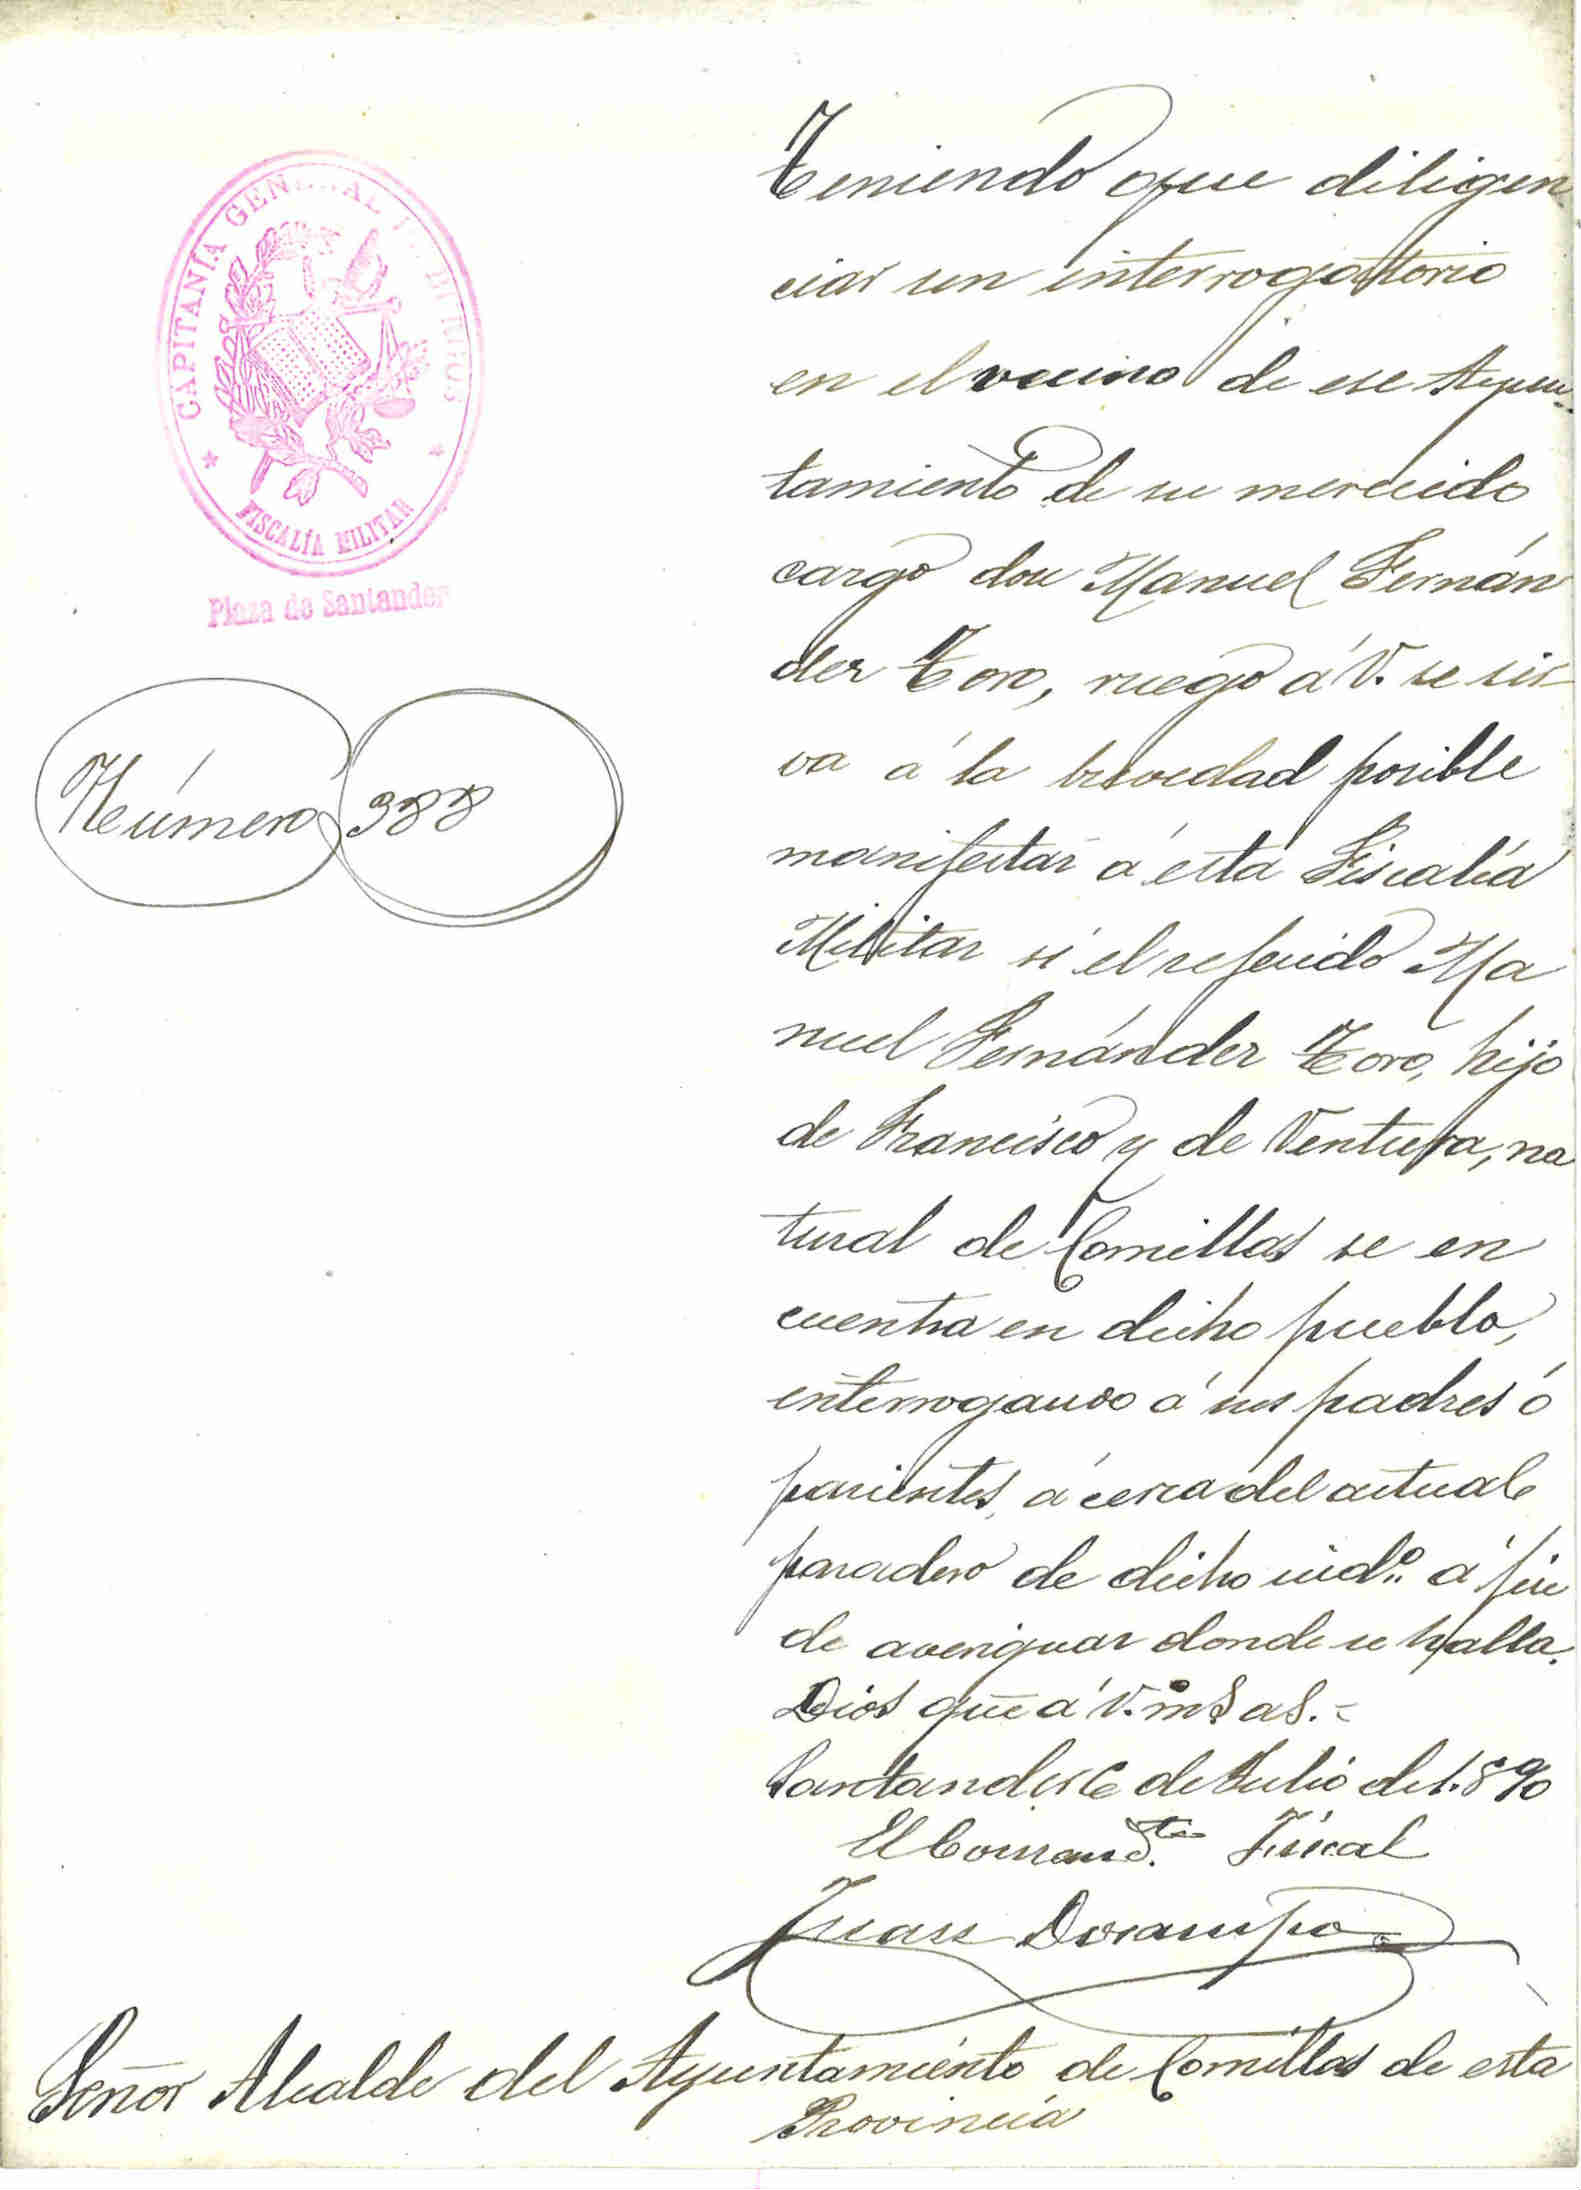 CAPITANÍA GENERAL DE BURGOS
FISCALÍA MILITAR
Plaza de Santander
Número 388
Teniendo que diligen
ciar un interrogatorio
en el vecino de ese Ayun-
tamiento de su merecido
cargo don Manuel Fernán
dez Toro, ruego á V. se sir-
va á la brevedad posible
manifestar á esta Fiscalía
Militar si el referido Ma
nuel Fernández Toro, hijo
de Francisco y de Ventura, na
tural de Comillas se en
cuentra en dicho pueblo,
interrogando á sus padres ó
parientes, á cerca del actual
paradero de dicho indº á fin
de averiguar donde se halla.
Dios gue á V. ms as.=
Santander 6 de Julio de 1.890
El Comandte Fiscal
Juan Docampo
Señor Alcalde del Ayuntamiento de Comillas de esta
Provincia